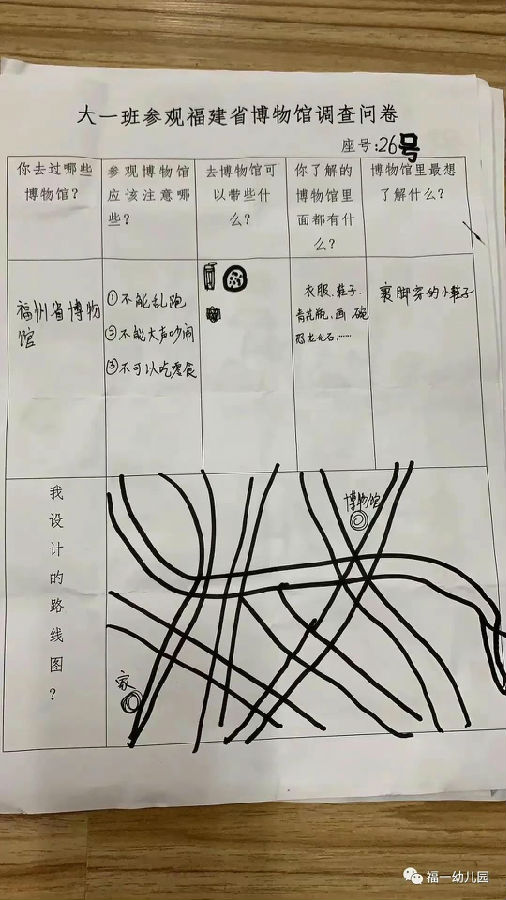 大一班参观福建省博物馆调查问卷
座号:26号
你去过哪些
博物馆?
参观博物馆
应该注意哪
些?
去博物馆可
以带些什
么?
你了解的
博物馆里
面都有什
么?
博物馆里最想
了解什么?
福州省博物
馆
①不能乱跑
②不能大声吵闹
③不可以吃零食
衣服、鞋子
青花瓶、画、碗
恐龙化石……
裹脚穿的小鞋子
我
设
计
的
路
线
图
?
博物馆
家
福一幼儿园